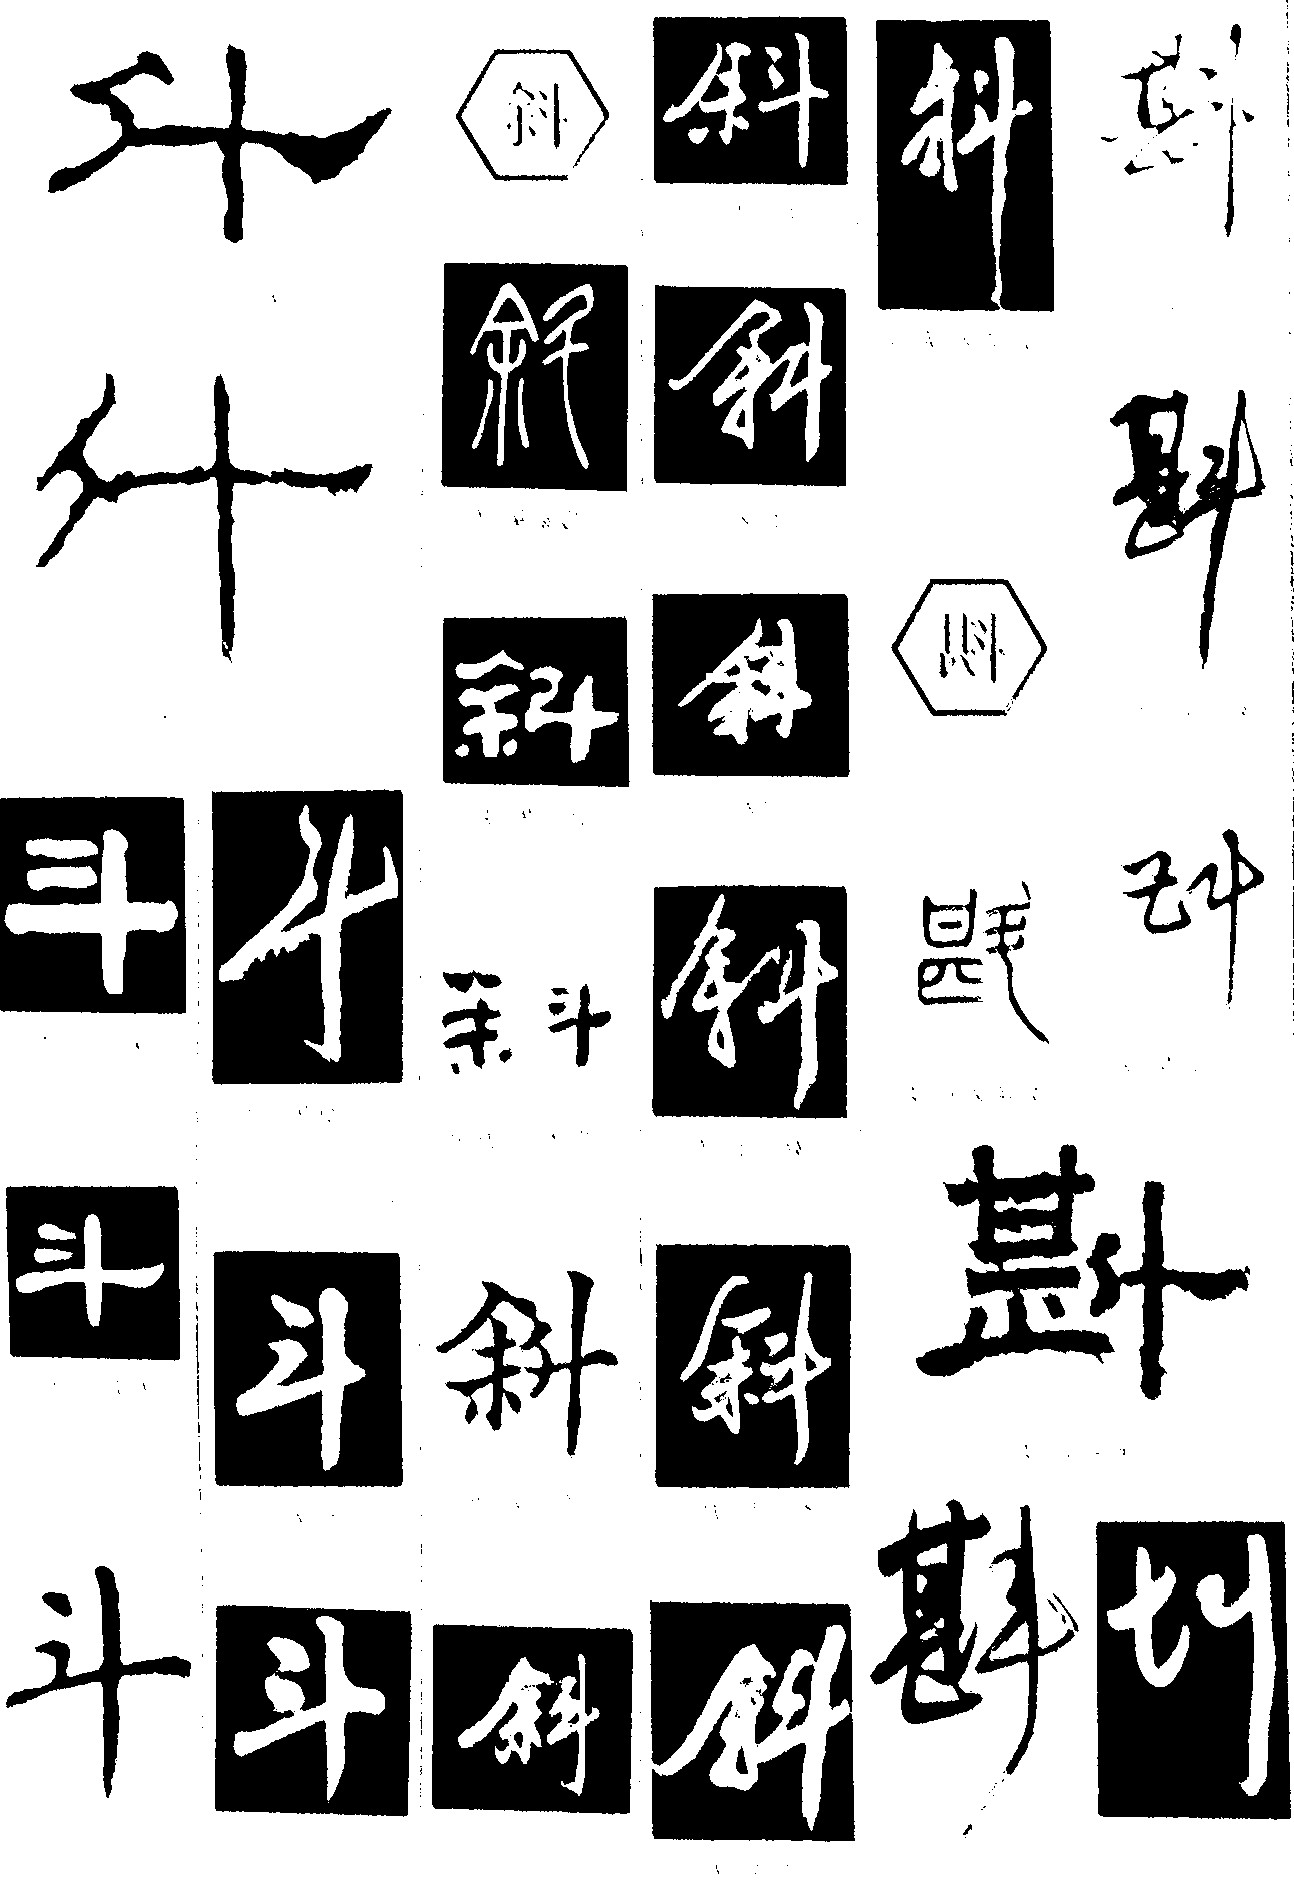 斗
斗
斗
斗
斗
斗
斗
斗
斜
斜
斜
斜
斜
斜
斜
斜
斜
斜
斜
斜
斜
斟
斟
斟
斟
斟
斟
斟
斟